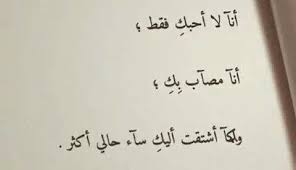 أنآ لا أحبكِ فقط ؛
أنآ مصآب بِكِ ؛
وكلمآ أشتقت أليكِ سآء حالي أكثر .